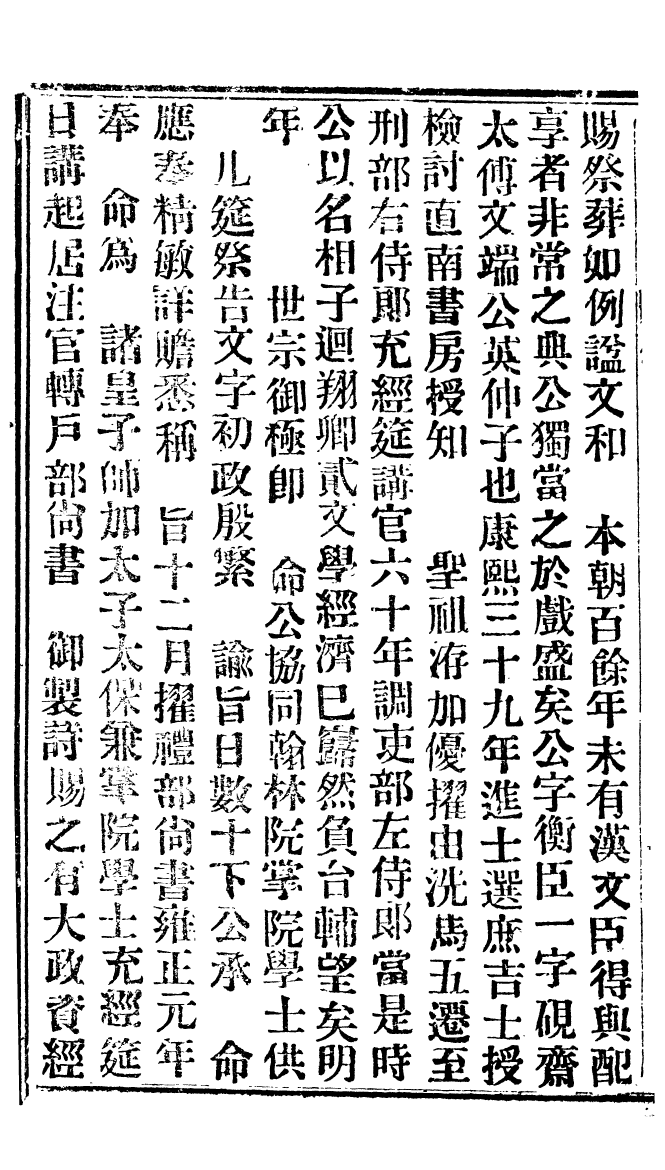 賜祭葬如例諡文和　本朝百餘年未有漢文臣得與配
享者非常之典公獨當之於戲盛矣公字衡臣一字硯齋
太傅文端公英仲子也康熙三十九年進士選庶吉士授
檢討直南書房授知　　聖祖洊加優擢由洗馬五遷至
刑部右侍郎充經筵講官六十年調吏部左侍郎當是時
公以名相子迴翔卿貳文學經濟已巋然負台輔望矣明
年　　　世宗御極即　命公協同翰林院掌院學士供
　几筵祭告文字初政殷繁　諭旨日數十下公承　命
應奉精敏詳贍悉稱　旨十二月擢禮部尚書雍正元年
奉　命爲　諸皇子師加太子太保兼掌院學士充經筵
日講起居注官轉戶部尚書　御製詩賜之有大政資經